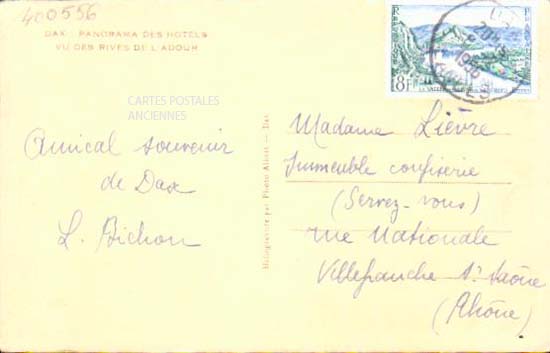 400556
DAX - PANORAMA DES HOTELS
VU DES RIVES DE L'ADOUR
CARTES POSTALES
ANCIENNES
Amical souvenir
de Dax
L. Bichon
Héliogravure par Photo Albert — Dax
8F
Madame Lièvre
Immeuble confiserie
(Servez-vous)
rue Nationale
Villefranche s? Saône
(Rhône)